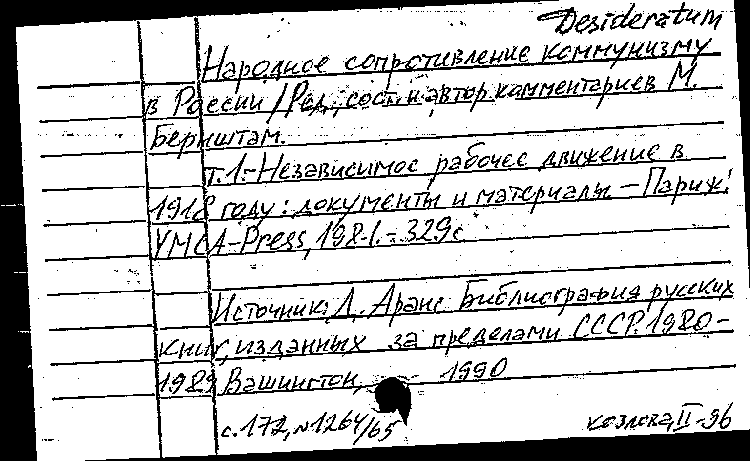 Desideratum
Народное сопротивление коммунизму
в России / Ред., сост. и автор комментариев М.
Бернштам.
т.1.-Независимое рабочее движение в
1918 году: документы и материалы – Париж:
YMCA-Press, 1981.-329с
Источник: Л. Аранс Библиография русских
книг, изданных за пределами СССР. 1980-
1989 Вашингтон, 1990
с.172, №1264/65
Козлова, II-96